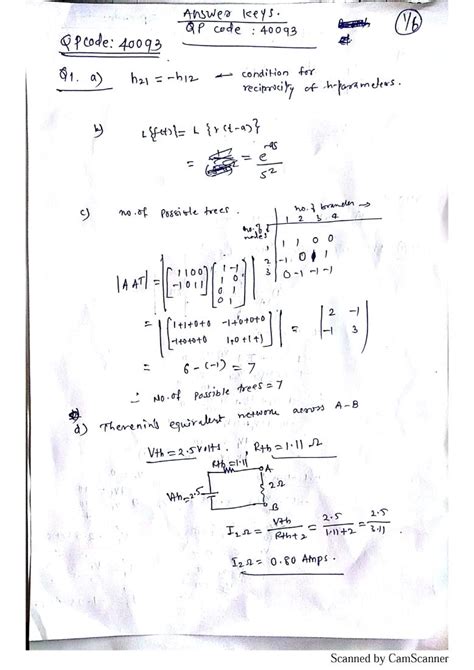 Answer keys.
QP code : 40093
1/6
QP code: 40093
Q1. a) h21 = -h12 ← condition for
reciprocity of h-parameters.
b) L{f(t)} = L {r(t-a)}
= e^-as / s^2
c) no. of possible trees.
no. of branches →
1 2 3 4
no. of nodes
1 1 1 0 0
2 -1 0 1 1
3 0 -1 -1 -1
|AAT| = |[1 1 0 0; -1 0 1 1] [1 -1; 1 0; 0 1; 0 1]|
= |[1+1+0+0 -1+0+0+0; -1+0+0+0 1+0+1+1]| = |2 -1; -1 3|
= 6-(-1) = 7
∴ No. of Possible trees = 7
d) Thevenin's equivalent network across A-B
Vth = 2.5 volts. , Rth = 1.11 Ω
Rth=1.11
A
Vth=2.5
2Ω
B
I2Ω = Vth / Rth+2 = 2.5 / 1.11+2 = 2.5 / 3.11
I2Ω = 0.80 Amps.
Scanned by CamScanner